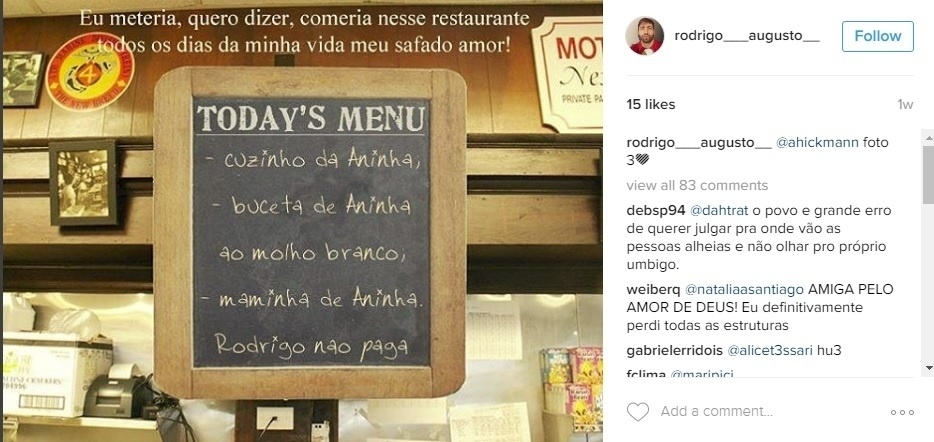 Eu meteria, quero dizer, comeria nesse restaurante
todos os dias da minha vida meu safado amor!
MOT
Ne
PRIVATE PA
4
TODAY'S MENU
- cuzinho da Aninha,
- buceta de Aninha
ao molho branco,
- maminha de Aninha.
Rodrigo nao paga
rodrigo___augusto__
Follow
15 likes
1w
rodrigo___augusto__ @ahickmann foto
3
view all 83 comments
debsp94 @dahtrat o povo e grande erro
de querer julgar pra onde vão as
pessoas alheias e não olhar pro próprio
umbigo.
weiberq @nataliaasantiago AMIGA PELO
AMOR DE DEUS! Eu definitivamente
perdi todas as estruturas
gabrielerridois @alicet3ssari hu3
fclima @maripici
Add a comment...